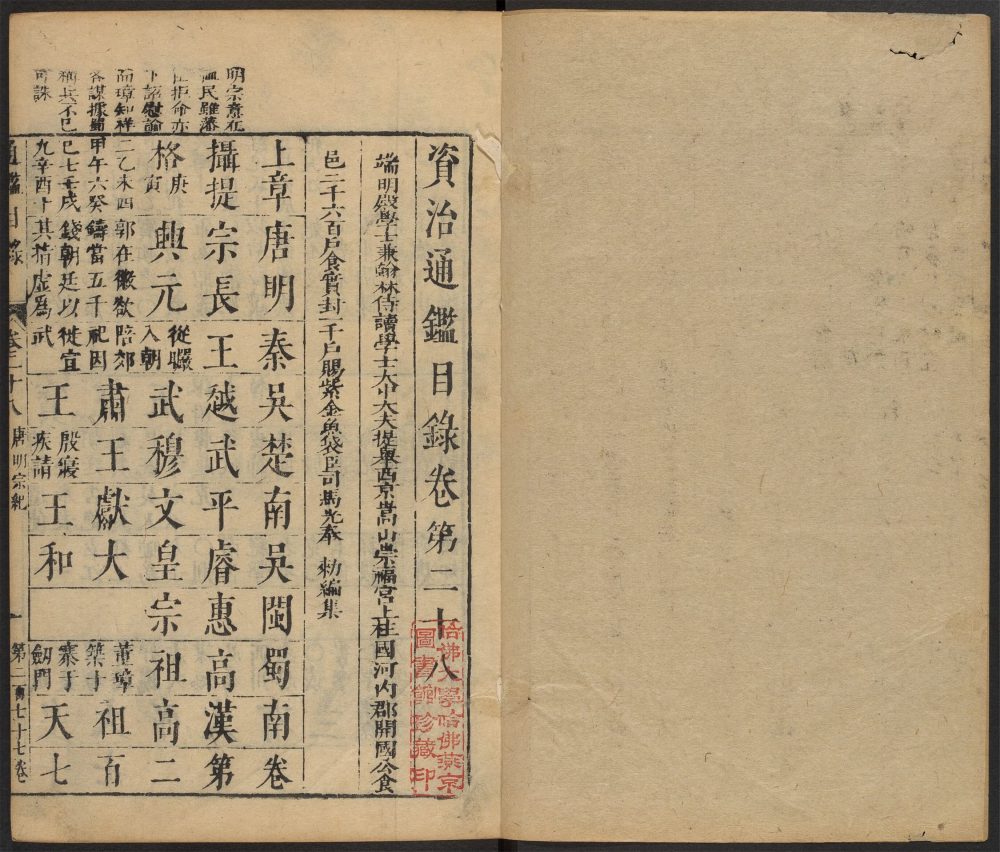 資治通鑑目錄卷第二十八
哈佛大學哈佛燕京
圖書館珍藏印
端明殿學士兼翰林侍讀學士太中大夫提舉西京嵩山崇福宮上柱國河內郡開國公食
邑二千六百戶食實封一千戶賜紫金魚袋臣司馬光奉 勑編集
明宗意在
民雖藩
拒命亦
下詔慰諭
而璋知祥
各謀據蜀
稱兵不已
可誅
上章唐明秦吳楚南吳閩蜀南卷
攝提宗長王越武平睿惠高漢第
格庚寅興元從曮入朝武穆文皇宗祖高二
二乙未四郭在徽欲陪郊肅王獻大董璋祖百
甲午六癸鑄當五千祀因築十
巳七壬戌錢朝廷以徙宣王殷寢王和寨于天七
九辛酉十其指虛爲武疾請劔門
通鑑目錄 卷二十八 唐明宗紀 一 第二百七十七卷